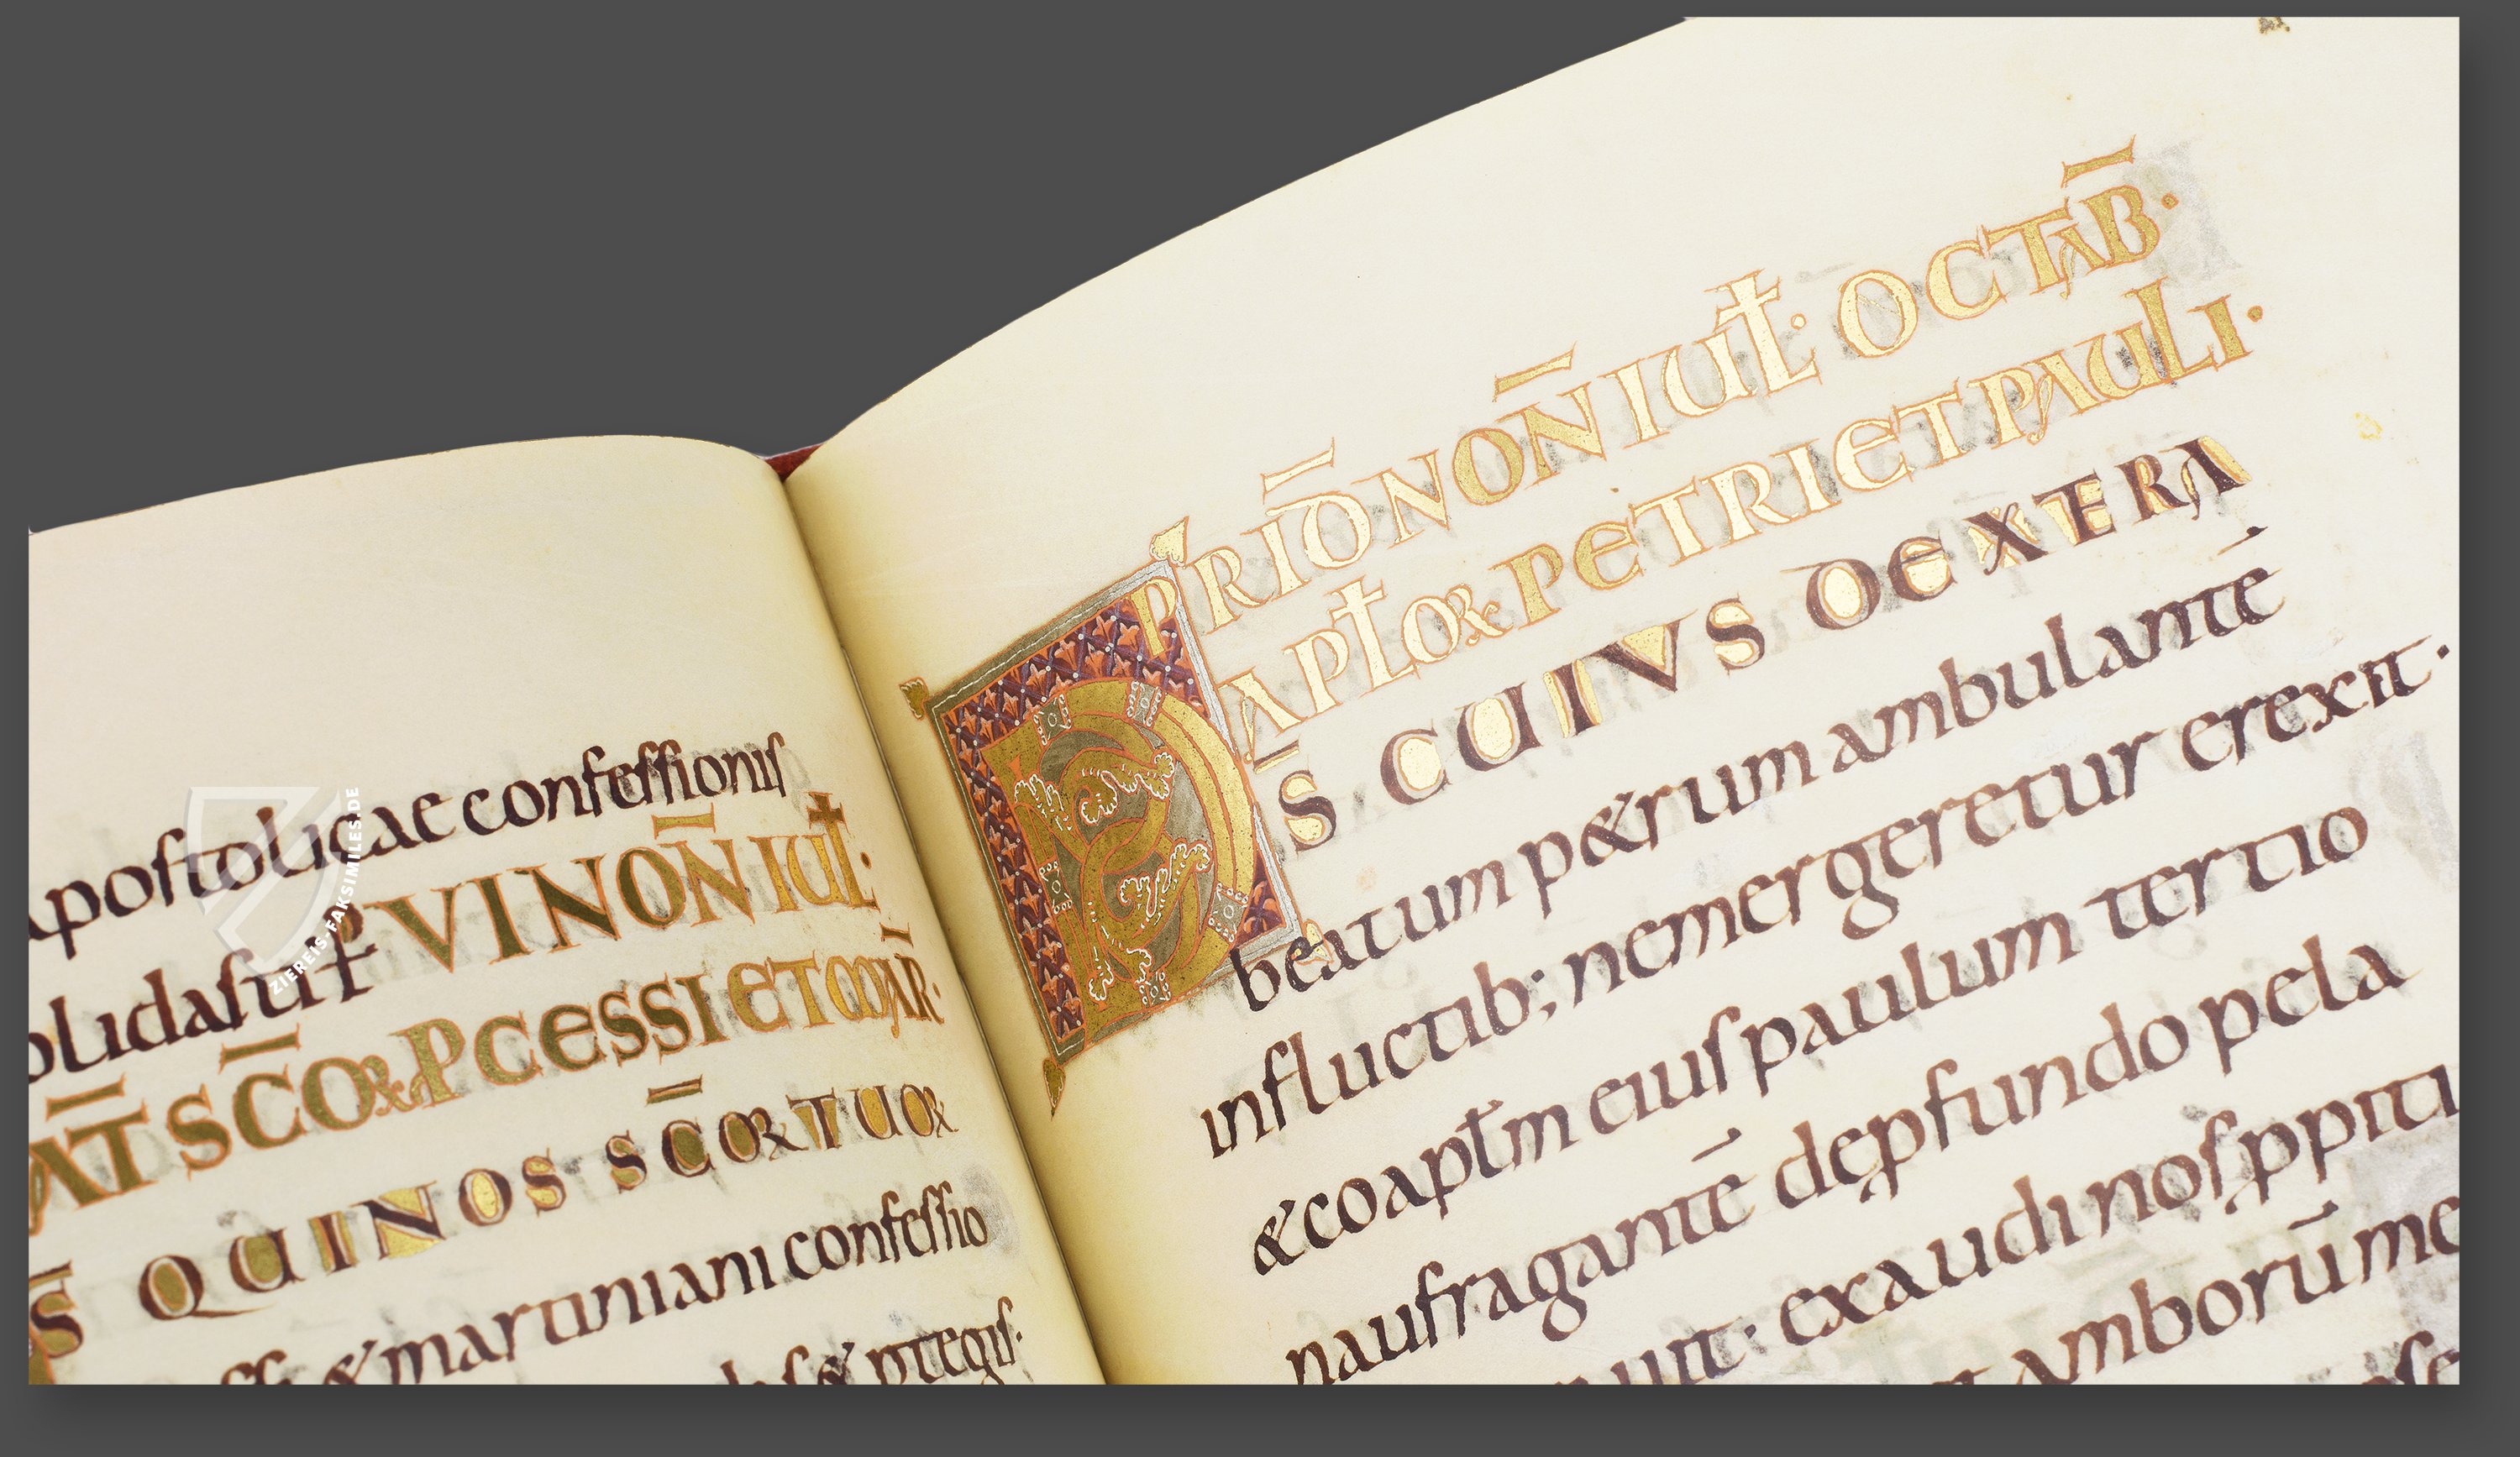 apostolicae confessionis
solidasti P̄ VI NOÑ IUL̄·
NAT̄ SC̄OR PCESSI ET MAR̄·
D̄S QUI NOS SC̄OR TUOR
& martiniani confessio
& ptegis·
ZIEREIS-FAKSIMILES.DE
PRID̄ NOÑ IUL̄· OCTAB̄·
APL̄OR PETRI ET PAULI·
D̄S CUIUS DEXERA
beatum p&rum ambulantē
influctib; nemergeretur erexit·
&coapl̄m eius paulum tertio
naufragantē depfundo pela
exaudi nos ppiti
amborū me